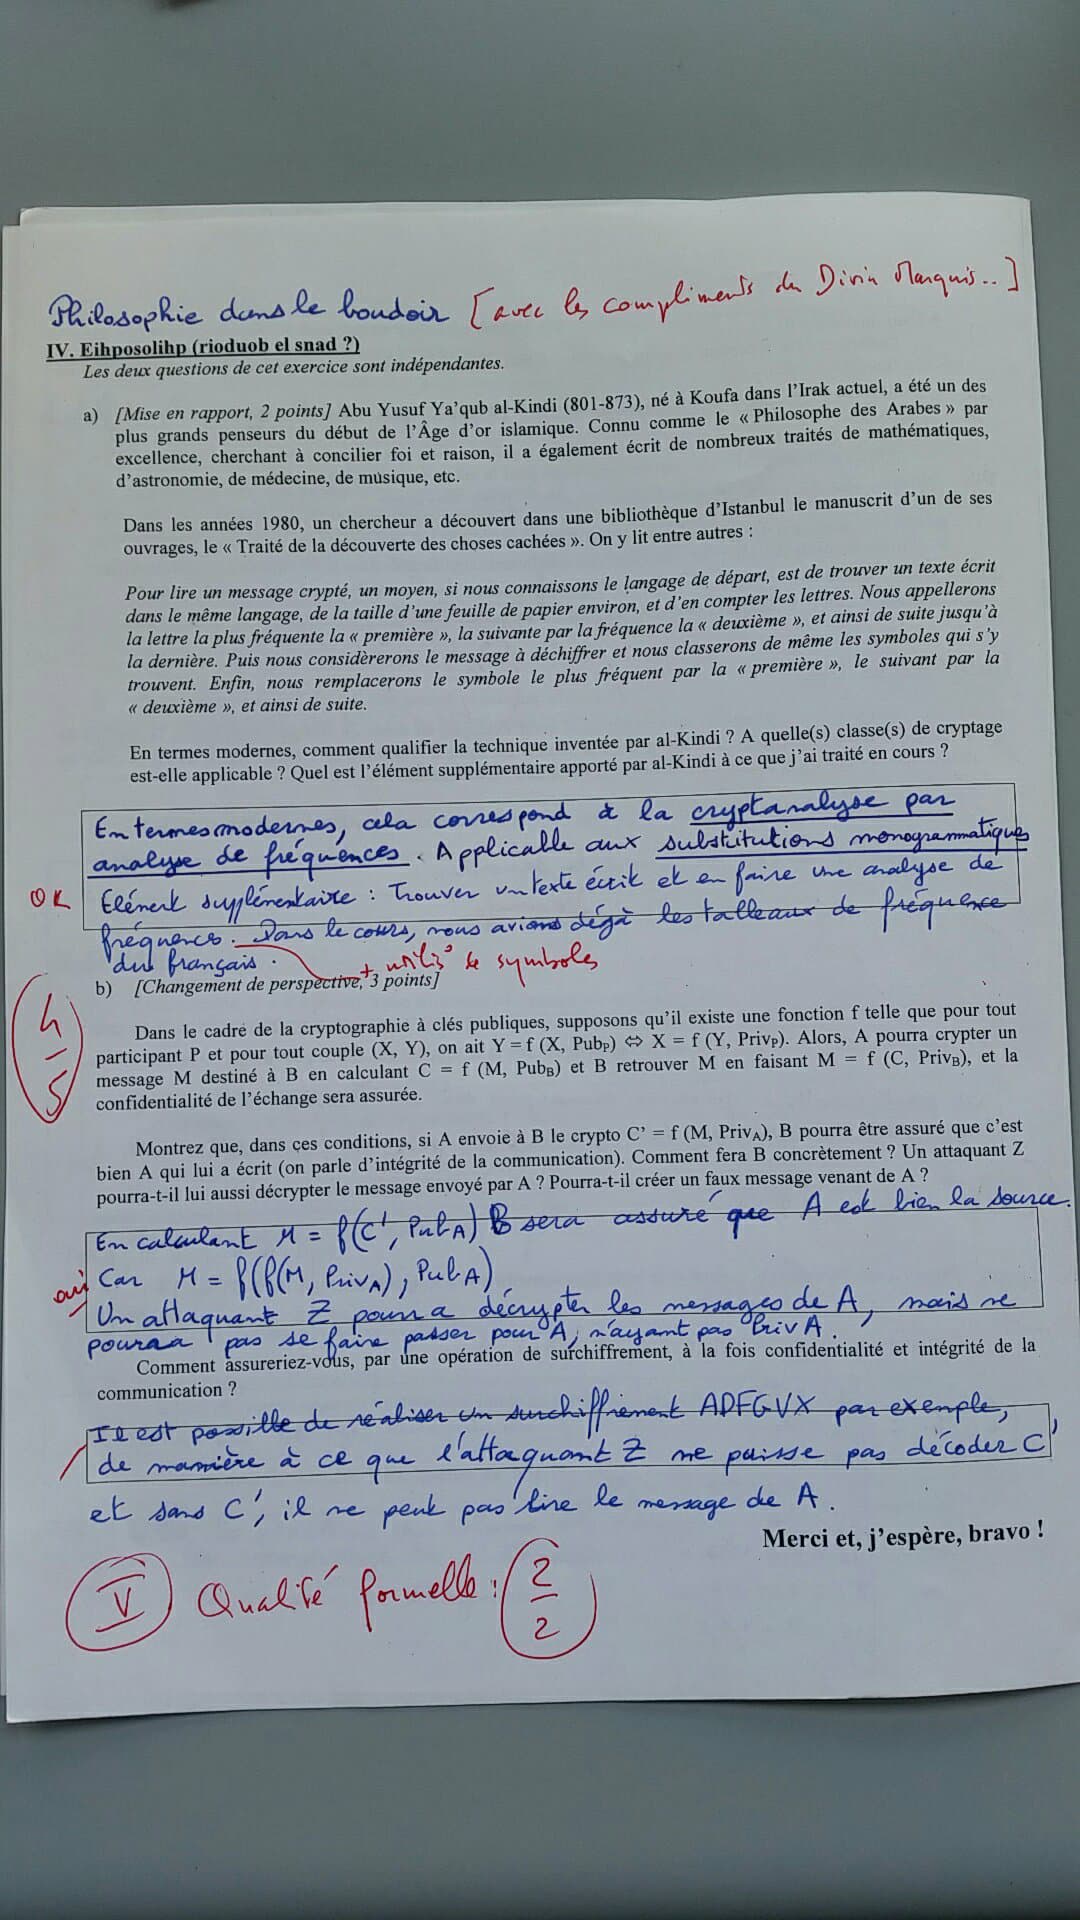 Philosophie dans le boudoir [avec les compliments du Divin Marquis..]
IV. Eihposolihp (rioduob el snad ?)
Les deux questions de cet exercice sont indépendantes.
a) [Mise en rapport, 2 points] Abu Yusuf Ya'qub al-Kindi (801-873), né à Koufa dans l'Irak actuel, a été un des
plus grands penseurs du début de l'Âge d'or islamique. Connu comme le « Philosophe des Arabes » par
excellence, cherchant à concilier foi et raison, il a également écrit de nombreux traités de mathématiques,
d'astronomie, de médecine, de musique, etc.
Dans les années 1980, un chercheur a découvert dans une bibliothèque d'Istanbul le manuscrit d'un de ses
ouvrages, le « Traité de la découverte des choses cachées ». On y lit entre autres :
Pour lire un message crypté, un moyen, si nous connaissons le langage de départ, est de trouver un texte écrit
dans le même langage, de la taille d'une feuille de papier environ, et d'en compter les lettres. Nous appellerons
la lettre la plus fréquente la « première », la suivante par la fréquence la « deuxième », et ainsi de suite jusqu'à
la dernière. Puis nous considèrerons le message à déchiffrer et nous classerons de même les symboles qui s'y
trouvent. Enfin, nous remplacerons le symbole le plus fréquent par la « première », le suivant par la
« deuxième », et ainsi de suite.
En termes modernes, comment qualifier la technique inventée par al-Kindi ? A quelle(s) classe(s) de cryptage
est-elle applicable ? Quel est l'élément supplémentaire apporté par al-Kindi à ce que j'ai traité en cours ?
En termes modernes, cela correspond à la cryptanalyse par
analyse de fréquences. Applicable aux substitutions monogrammatiques
OK Elément supplémentaire : Trouver un texte écrit et en faire une analyse de
fréquences. Dans le cours, nous avions déjà les tableaux de fréquence
du français.
+ utilis° de symboles
b) [Changement de perspective, 3 points]
4/5
Dans le cadre de la cryptographie à clés publiques, supposons qu'il existe une fonction f telle que pour tout
participant P et pour tout couple (X, Y), on ait Y = f (X, PubP) ⇔ X = f (Y, PrivP). Alors, A pourra crypter un
message M destiné à B en calculant C = f (M, PubB) et B retrouver M en faisant M = f (C, PrivB), et la
confidentialité de l'échange sera assurée.
Montrez que, dans ces conditions, si A envoie à B le crypto C' = f (M, PrivA), B pourra être assuré que c'est
bien A qui lui a écrit (on parle d'intégrité de la communication). Comment fera B concrètement ? Un attaquant Z
pourra-t-il lui aussi décrypter le message envoyé par A ? Pourra-t-il créer un faux message venant de A ?
En calculant M = f(C', PubA) B sera assuré que A est bien la source.
oui Car M = f(f(M, PrivA), PubA)
Un attaquant Z pourra décrypter les messages de A, mais ne
pourra pas se faire passer pour A, n'ayant pas PrivA.
Comment assureriez-vous, par une opération de surchiffrement, à la fois confidentialité et intégrité de la
communication ?
Il est possible de réaliser un surchiffrement ADFGVX par exemple,
de manière à ce que l'attaquant Z ne puisse pas décoder C'
et sans C', il ne peut pas lire le message de A.
Merci et, j'espère, bravo !
V Qualité formelle : 2/2